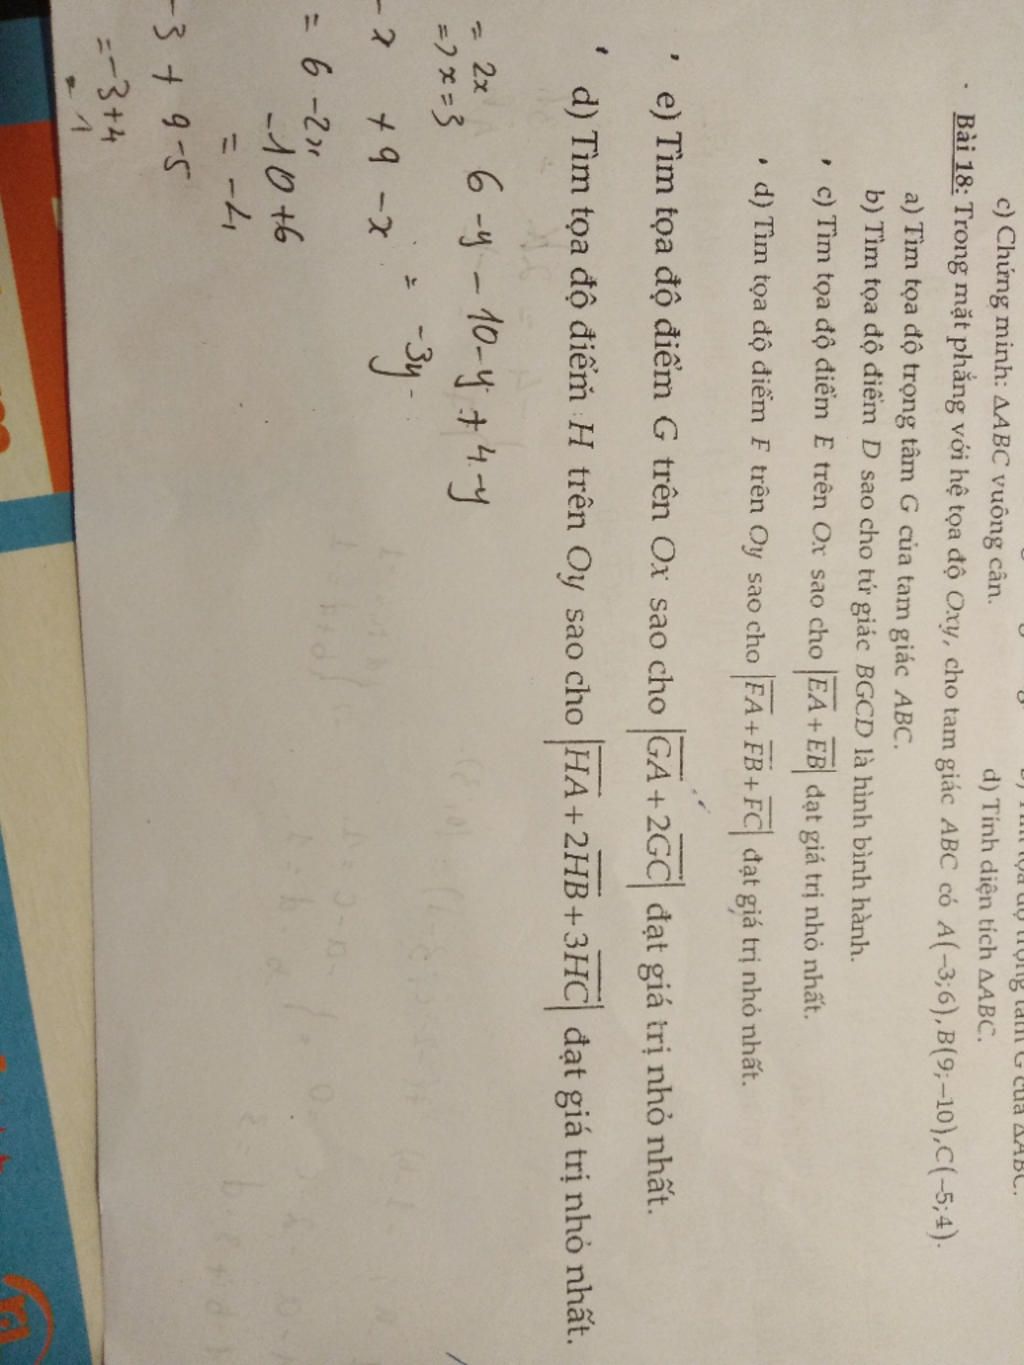 c) Chứng minh: ΔABC vuông cân.
d) Tính diện tích ΔABC.
Bài 18: Trong mặt phẳng với hệ tọa độ Oxy, cho tam giác ABC có A(−3;6), B(9;−10), C(−5;4).
a) Tìm tọa độ trọng tâm G của tam giác ABC.
b) Tìm tọa độ điểm D sao cho tứ giác BGCD là hình bình hành.
c) Tìm tọa độ điểm E trên Ox sao cho |EA + EB| đạt giá trị nhỏ nhất.
d) Tìm tọa độ điểm F trên Oy sao cho |FA + FB + FC| đạt giá trị nhỏ nhất.
e) Tìm tọa độ điểm G trên Ox sao cho |GA + 2GC| đạt giá trị nhỏ nhất.
d) Tìm tọa độ điểm H trên Oy sao cho |HA + 2HB + 3HC| đạt giá trị nhỏ nhất.
= 2x 6 -y - 10-y + 4-y
=> x=3
= -3y
-x + 9 -x
= 6 -2x
-10+6
= -4
-3 + 9-5
= -3+4
= 1